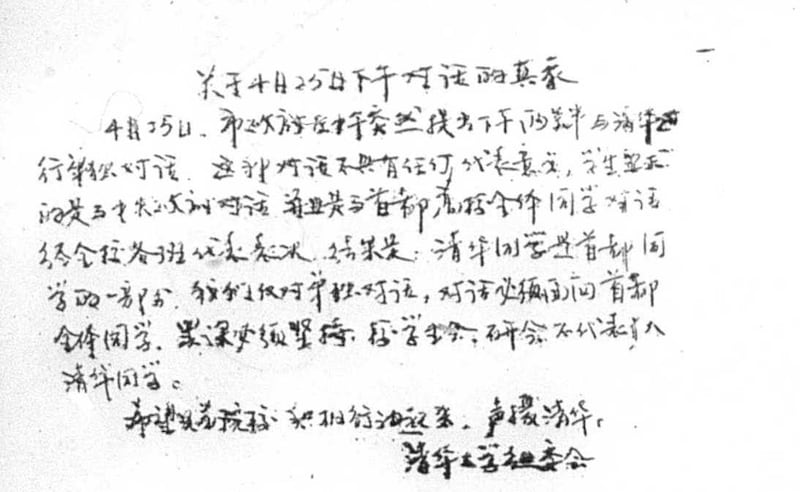 关于4月25日下午对话的真象
4月25日、市政府在中午突然提出下午两点半与清华进
行单独对话 这种对话不具有任何代表意义,学生要求
的是与中央政府对话 并且是与首都高校全体同学对话
经全校各班代表表决 结果是:清华同学是首都同
学的一部分 我们反对单独对话,对话必须面向首都
全体同学、罢课必须坚持 校学生会、研会不代表
清华同学。
希望兄弟院校 积极行动起来、声援清华。
清华大学委会